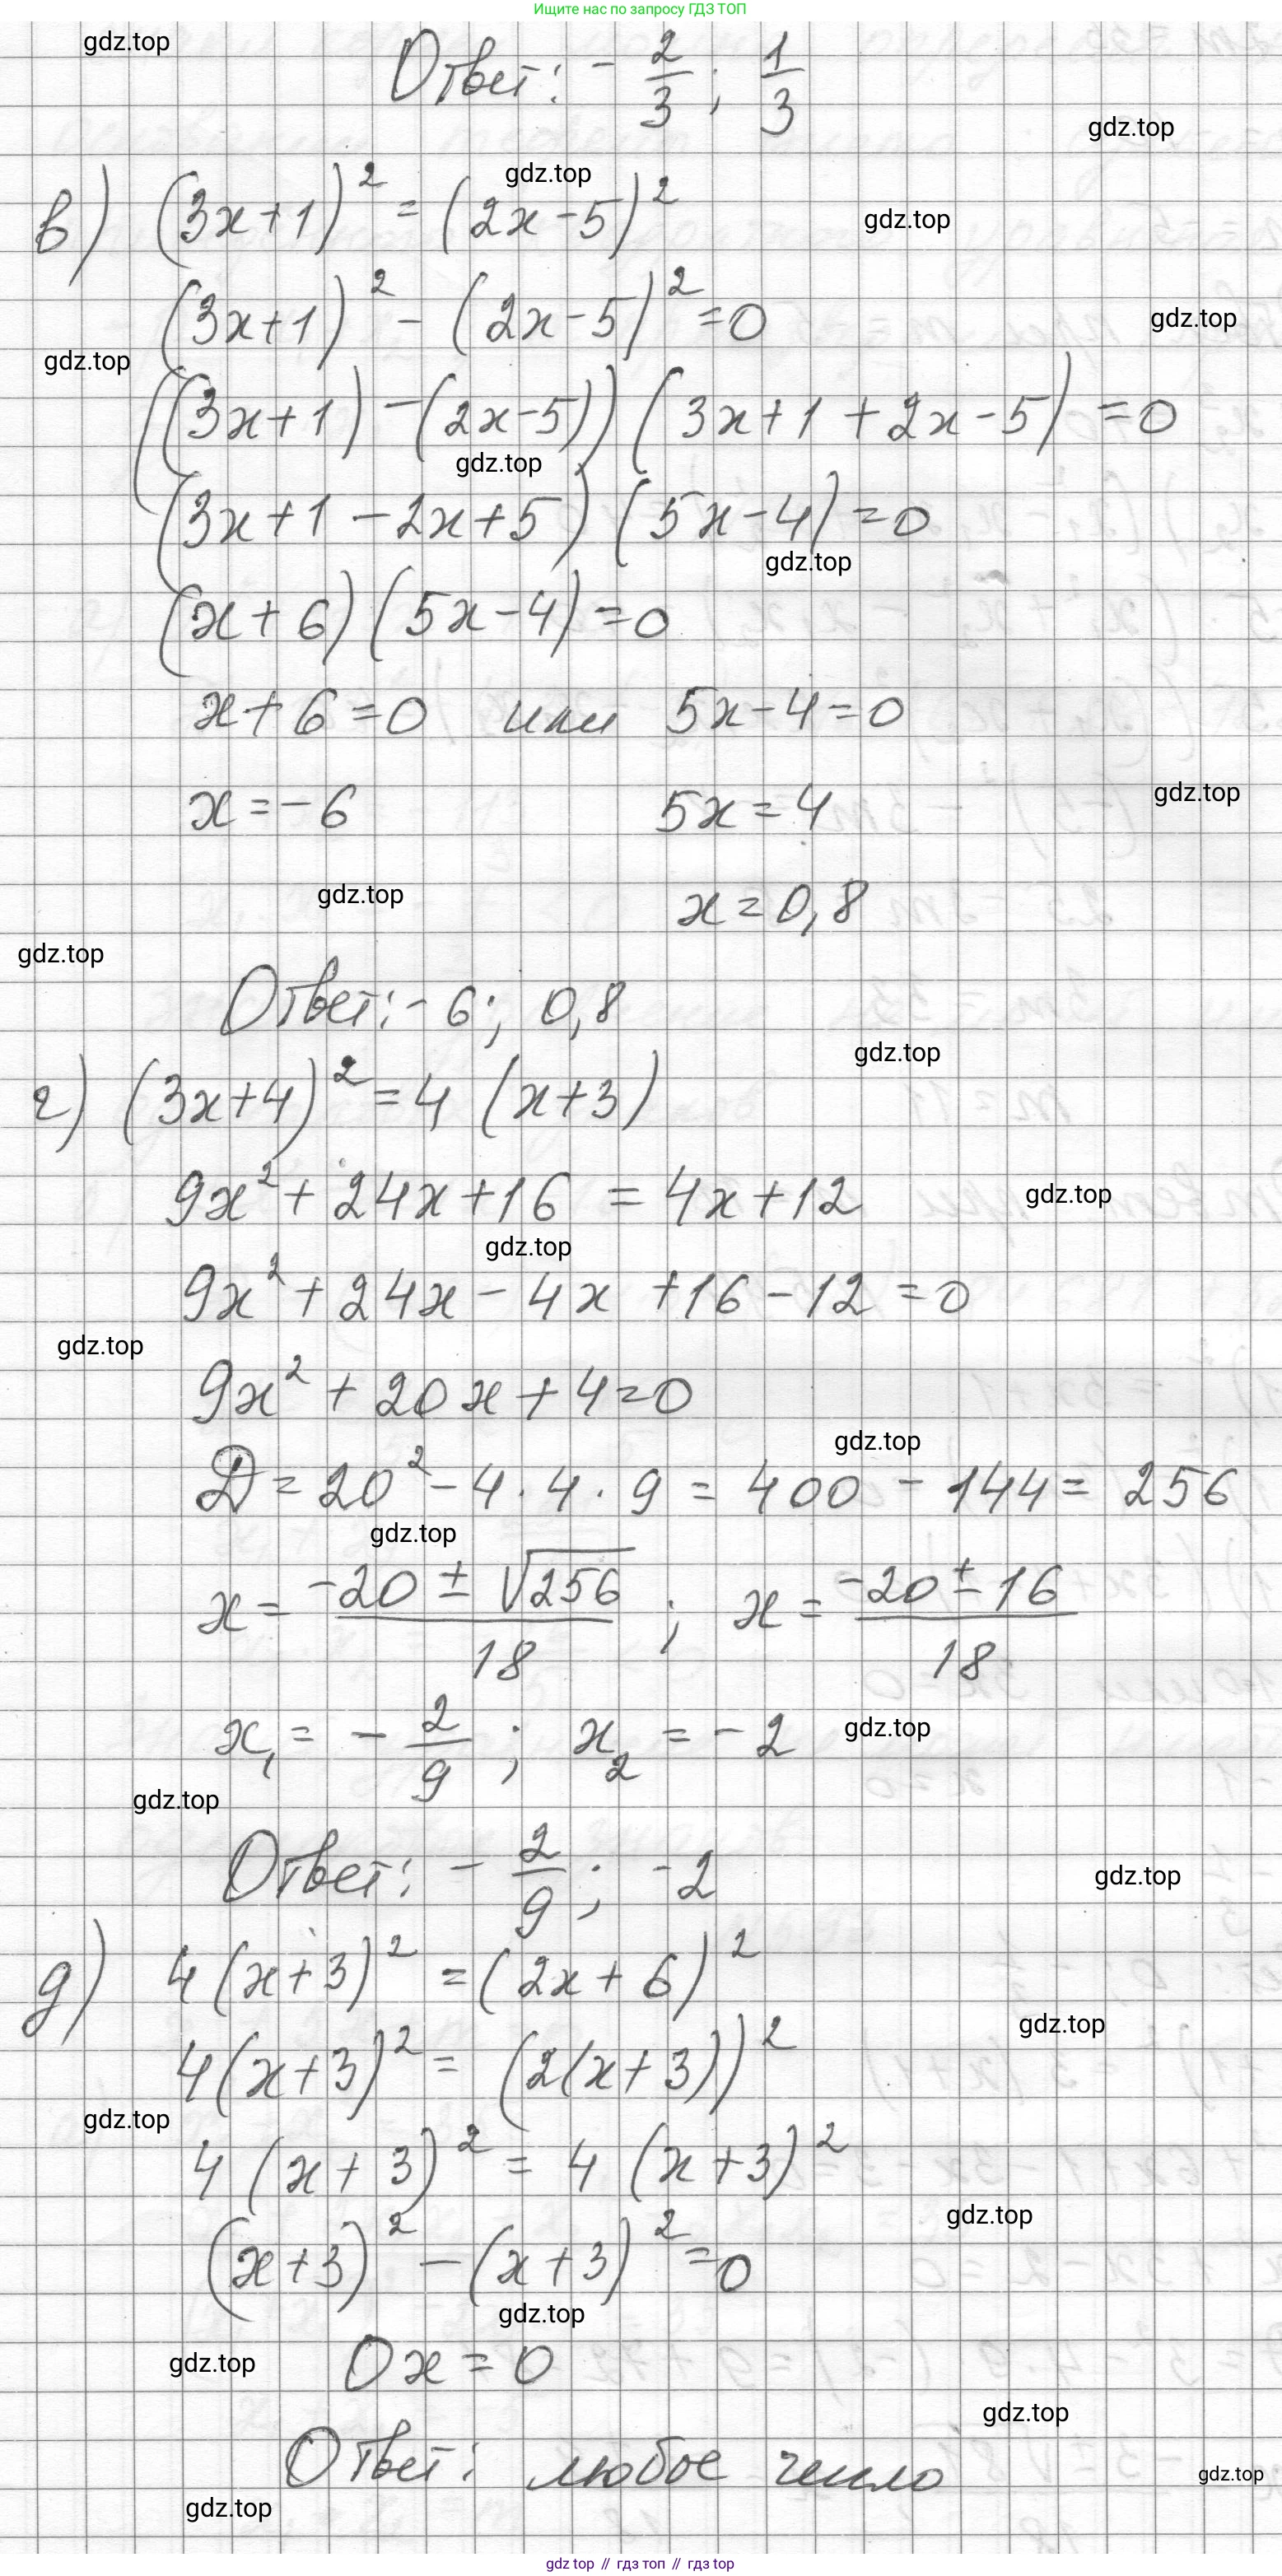 Ищите нас по запросу ГДЗ ТОП
gdz.top
Ответ: - 2/3 ; 1/3
gdz.top
gdz.top
в) (3x+1)² = (2x-5)²
gdz.top
(3x+1)² - (2x-5)² = 0
gdz.top
gdz.top
((3x+1) - (2x-5)) (3x+1+2x-5) = 0
gdz.top
(3x+1-2x+5) (5x-4) = 0
gdz.top
(x+6) (5x-4) = 0
x+6=0 или 5x-4=0
x = -6 5x = 4
gdz.top
gdz.top
x = 0,8
gdz.top
Ответ: -6; 0,8
gdz.top
г) (3x+4)² = 4 (x+3)
9x² + 24x + 16 = 4x + 12
gdz.top
gdz.top
9x² + 24x - 4x + 16 - 12 = 0
gdz.top
9x² + 20x + 4 = 0
gdz.top
D = 20² - 4 · 4 · 9 = 400 - 144 = 256
gdz.top
x = (-20 ± √256)/18 ; x = (-20 ± 16)/18
x₁ = - 2/9 ; x₂ = -2
gdz.top
gdz.top
Ответ: - 2/9 ; -2
gdz.top
д) 4(x+3)² = (2x+6)²
gdz.top
4(x+3)² = (2(x+3))²
gdz.top
4 (x+3)² = 4 (x+3)²
gdz.top
(x+3)² - (x+3)² = 0
gdz.top
gdz.top
0x = 0
gdz.top
Ответ: любое число
gdz.top
gdz.top
gdz top // гдз топ // gdz top